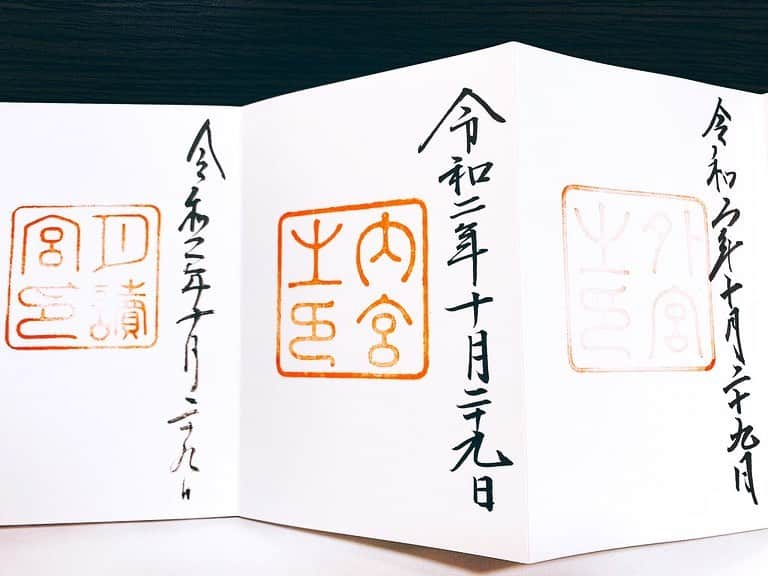 令和二年十月二十九日
外宮
之印
令和二年十月二十九日
内宮
之印
令和二年十月二十九日
月讀
宮印